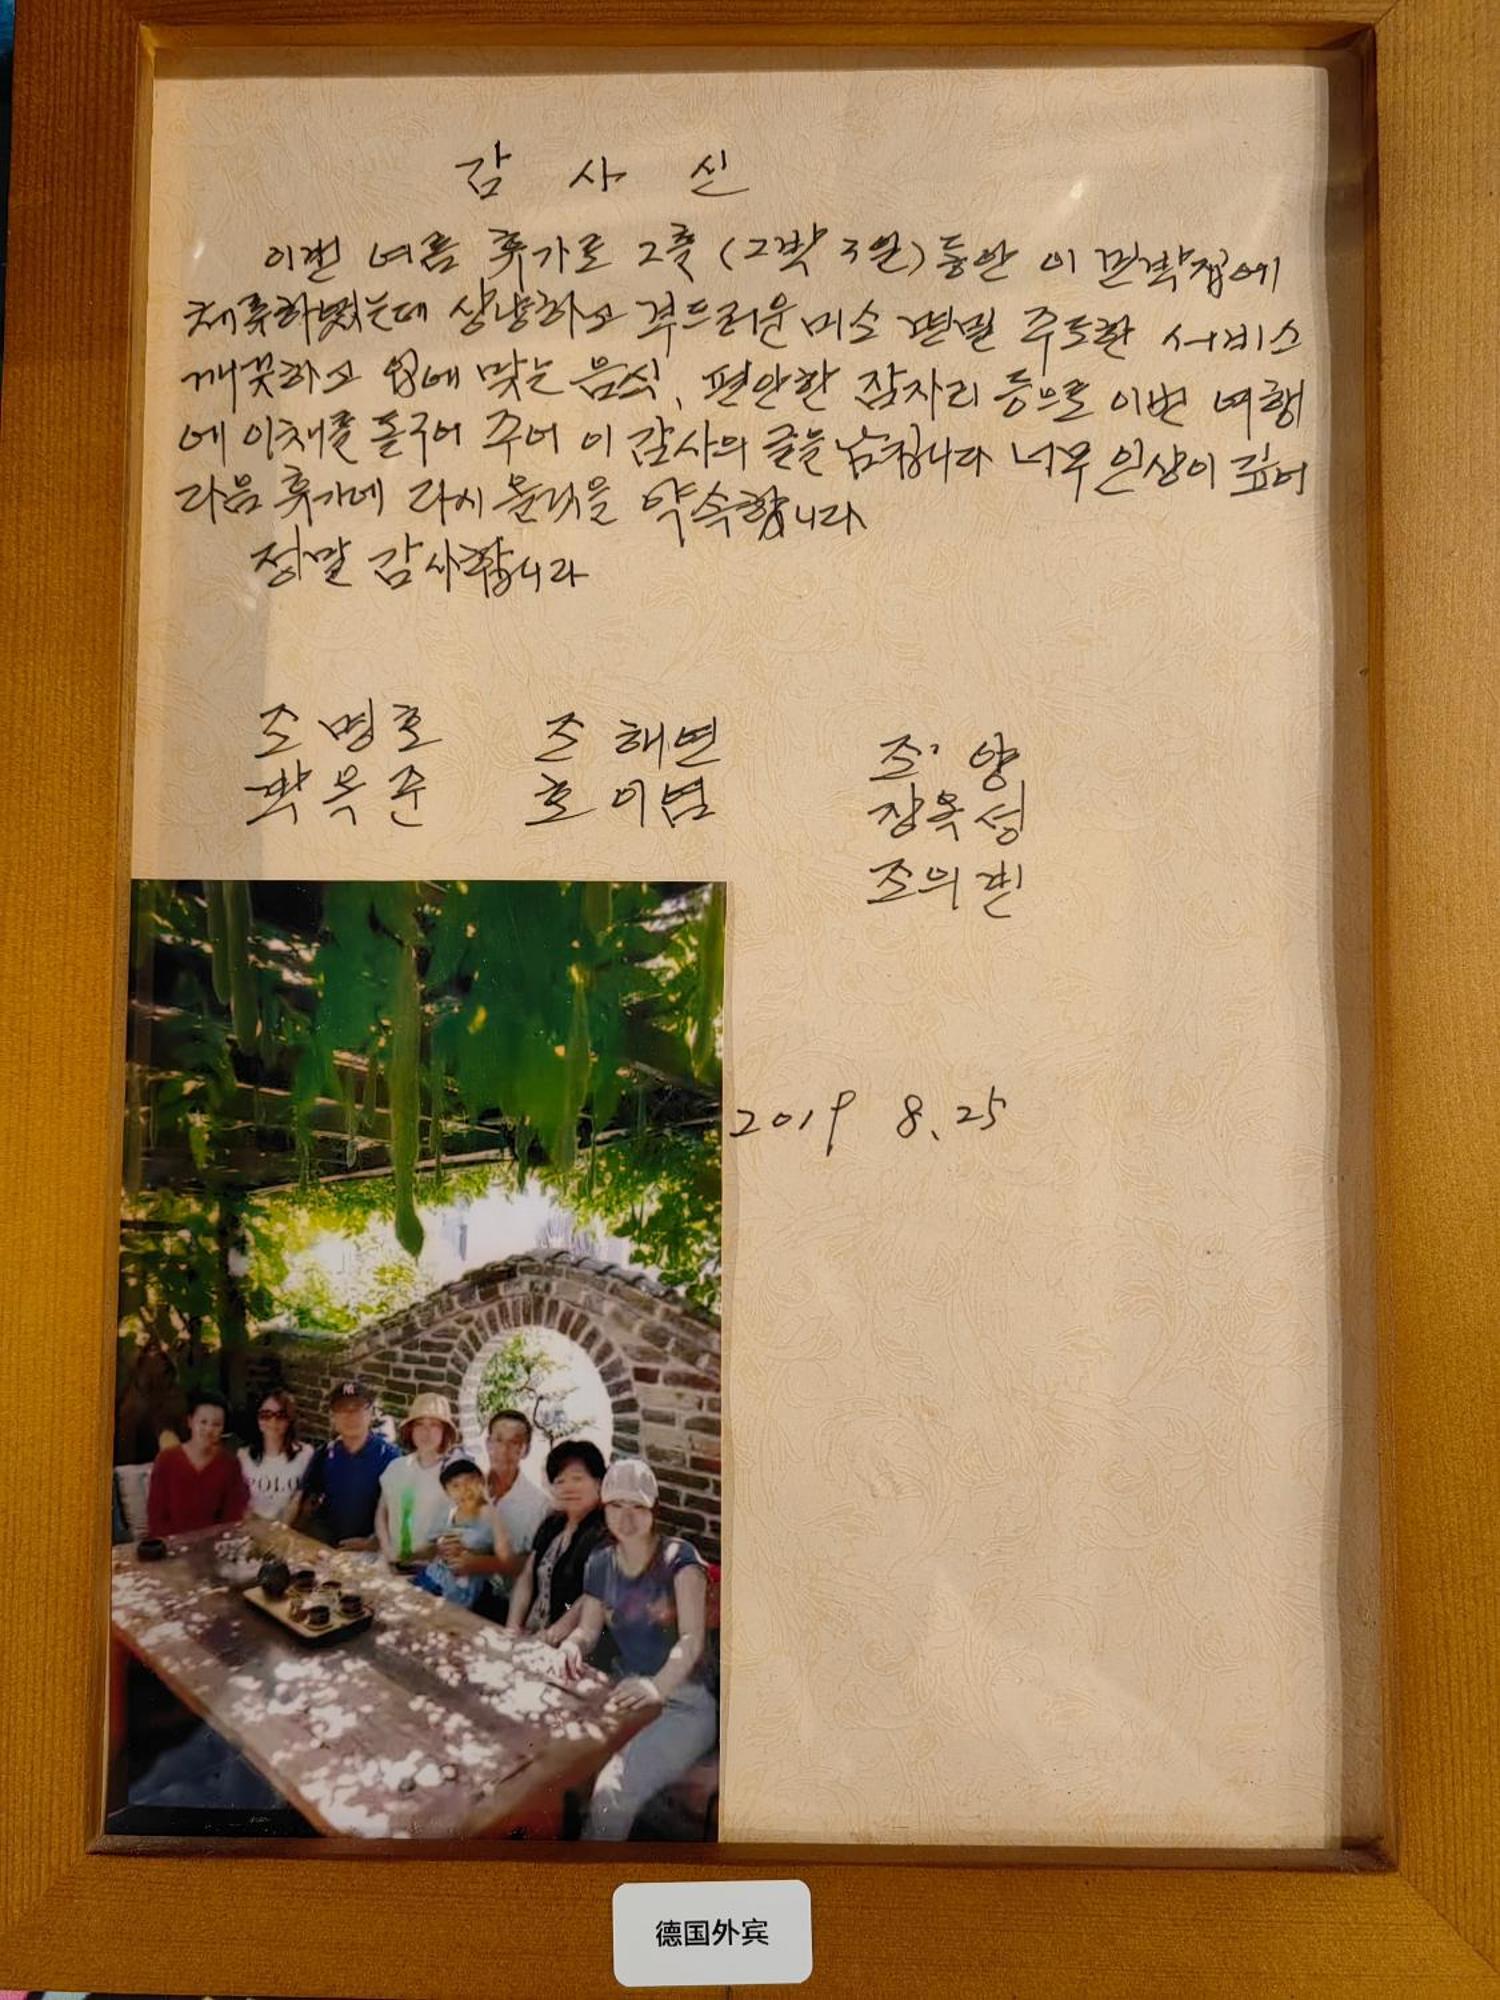 감 사 신
이번 여름 휴가로 2틀 (2박 3일) 동안 이 민박집에
체류하였는데 상냥하고 부드러운 미소 면밀 주도한 서비스
깨끗하고 입에 맞는 음식, 편안한 잠자리 등으로 이번 여행
에 이채를 돋구어 주어 이 감사의 글을 남깁니다 너무 인상이 깊어
다음 휴가에 다시 올것을 약속합니다
정말 감사합니다
조 명호 조 해연 조 양
박옥준 호이범 장옥성
조의린
2019 8.25
POLO
德国外宾